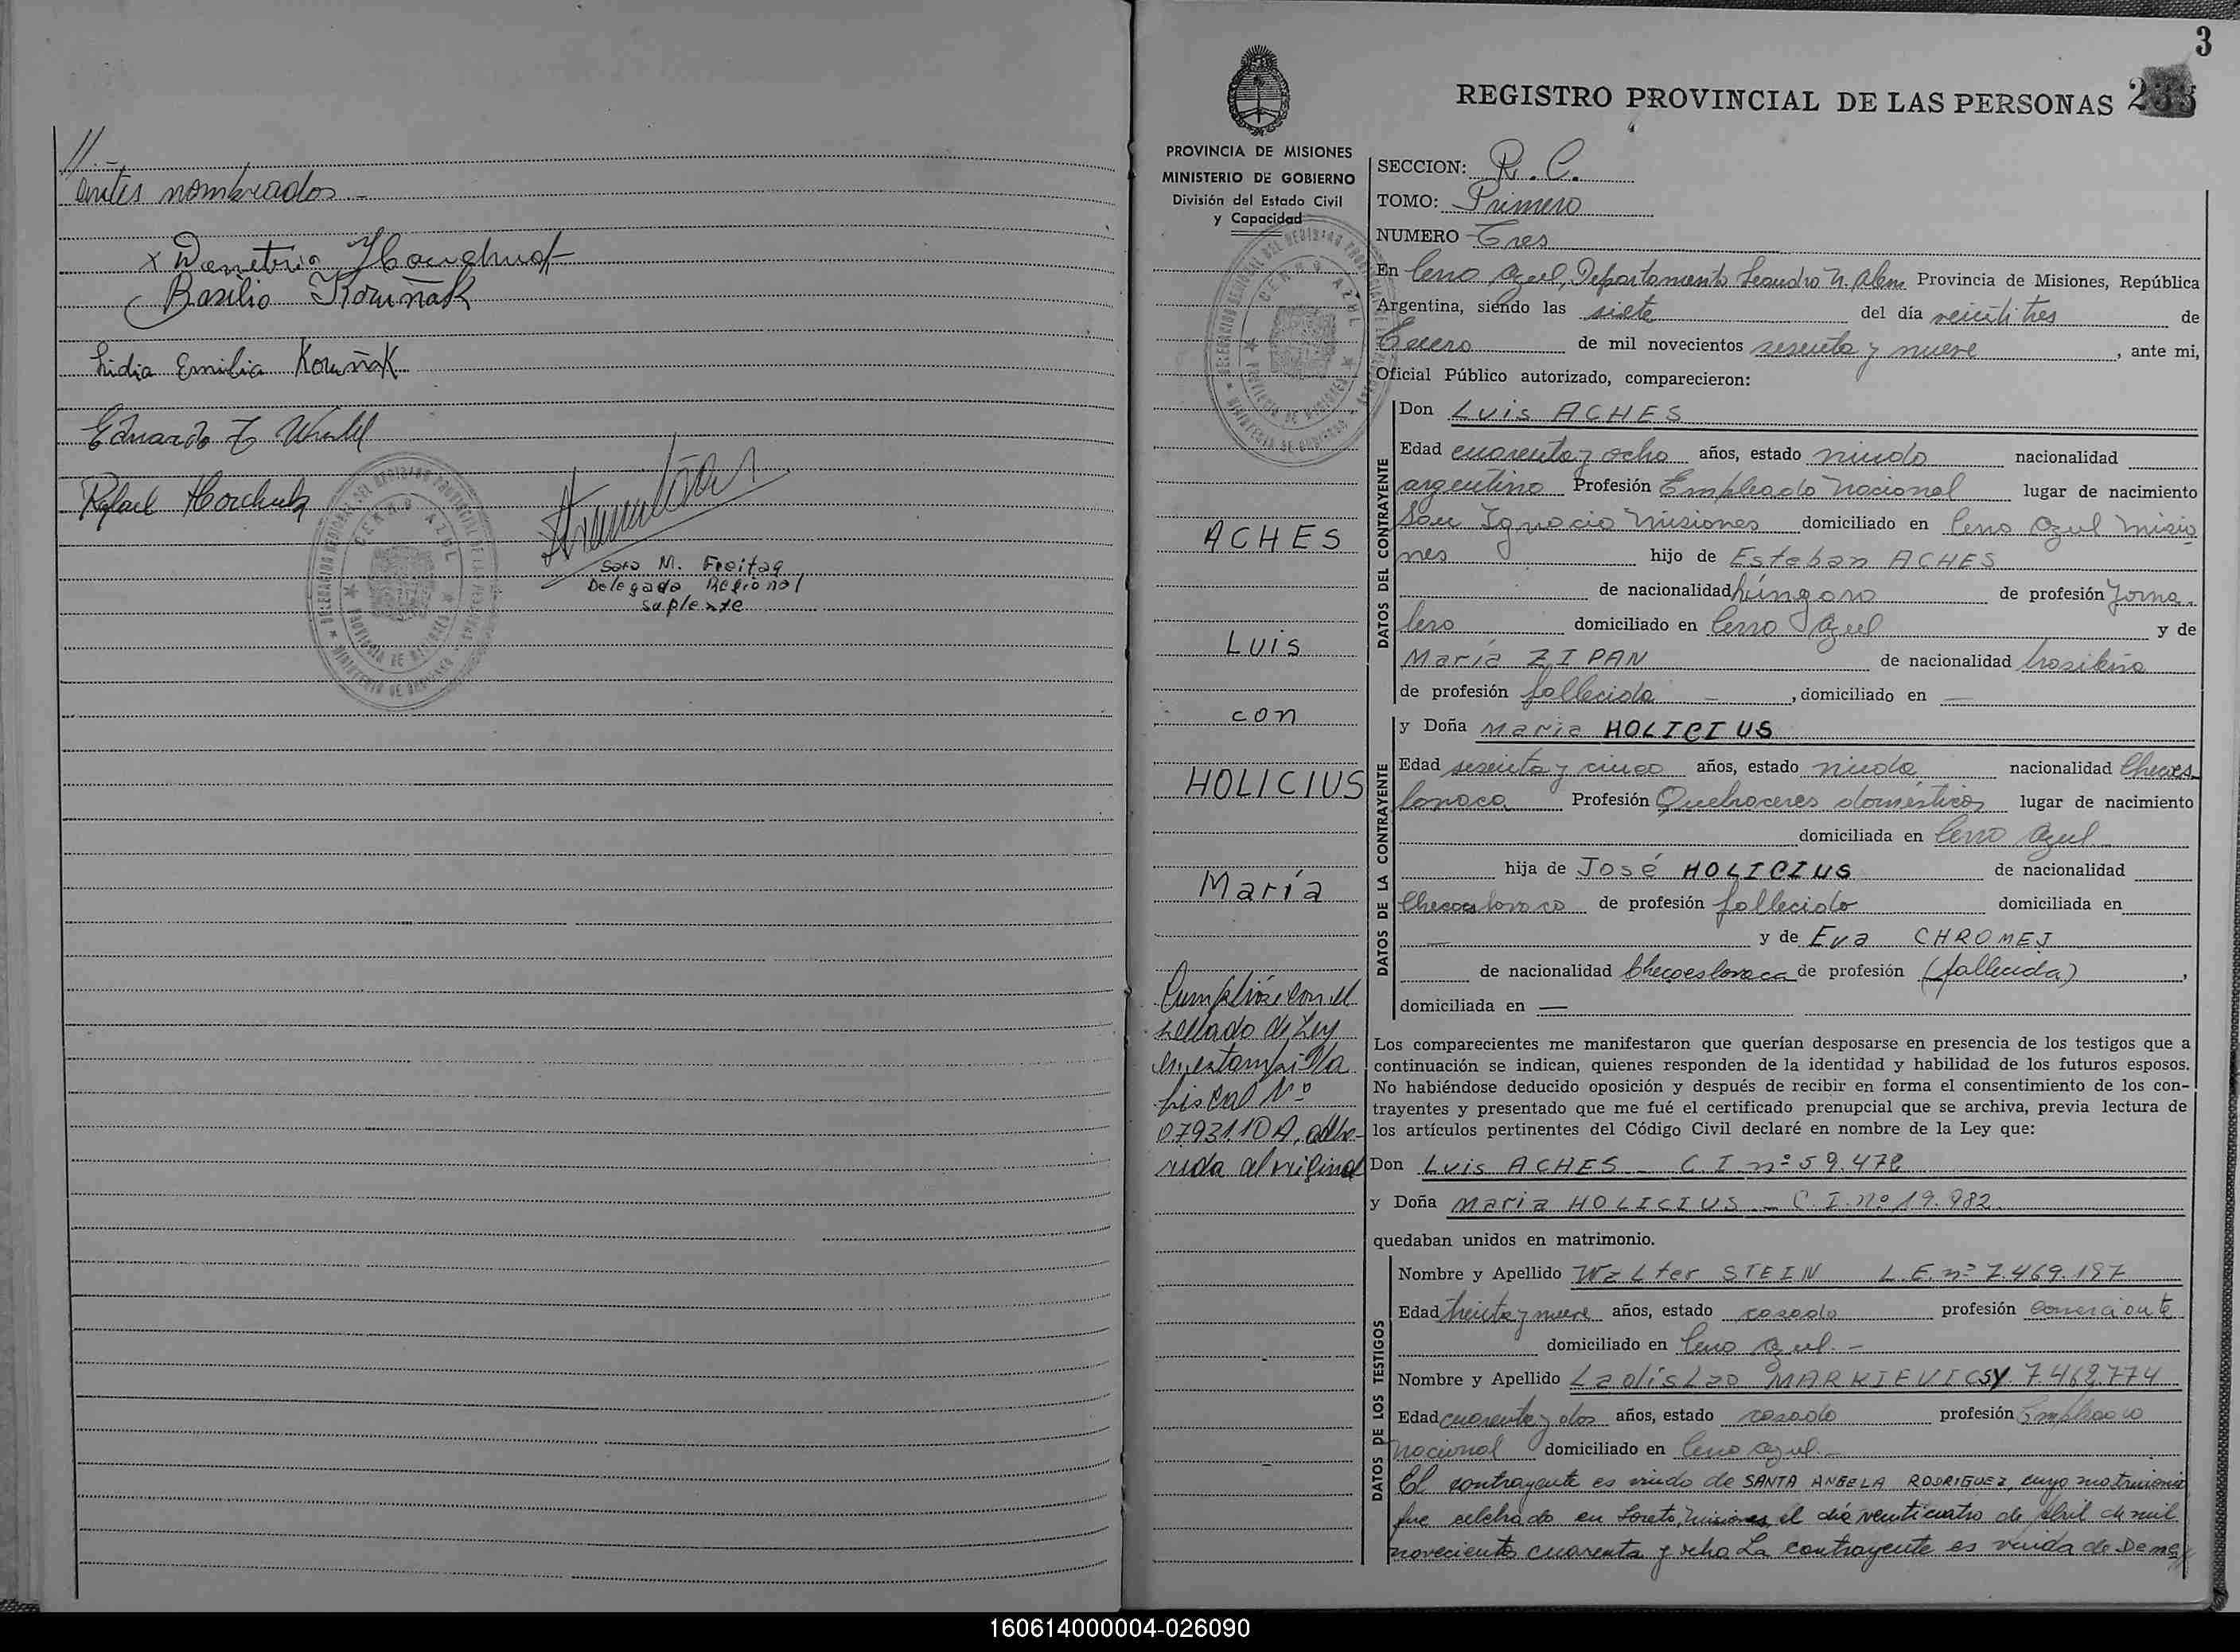 //.-
antes nombrados.-
x Demetrio Horchuk
Basilio Koruñak
Lidia Emilia Koruñak
Eduardo
Rafael Horchuk
Sara M. Freitag
Delegada Regional
suplente
CERRO AZUL
3
REGISTRO PROVINCIAL DE LAS PERSONAS
PROVINCIA DE MISIONES
MINISTERIO DE GOBIERNO
División del Estado Civil
y Capacidad
CERRO AZUL
ACHES
Luis
con
HOLICIUS
María
Cumplióse con el
sellado de Ley
en estampilla
fiscal Nº
0793110A, adhe-
rida al original
SECCION: R. C.
TOMO: Primero
NUMERO Tres
En Cerro Azul, Departamento Leandro N. Alem Provincia de Misiones, República
Argentina, siendo las siete del día veintitres de
Enero de mil novecientos sesenta y nueve, ante mi,
Oficial Público autorizado, comparecieron:
DATOS DEL CONTRAYENTE
Don Luis ACHES
Edad cuarenta y ocho años, estado viudo nacionalidad
argentino Profesión Empleado Nacional lugar de nacimiento
San Ignacio Misiones domiciliado en Cerro Azul Misio
nes hijo de Esteban ACHES
de nacionalidad húngaro de profesión Jorna-
lero domiciliado en Cerro Azul y de
María ZIPAN de nacionalidad brasileña
de profesión fallecida - , domiciliado en —
DATOS DE LA CONTRAYENTE
y Doña Maria HOLICIUS
Edad sesenta y cinco años, estado viuda nacionalidad Checoes-
lovaca Profesión Quehaceres domésticos lugar de nacimiento
domiciliada en Cerro Azul
hija de José HOLICIUS de nacionalidad
Checoeslovaco de profesión fallecido domiciliada en
— y de Eva CHROMEJ
de nacionalidad Checoeslovaca de profesión (fallecida) ,
domiciliada en —
Los comparecientes me manifestaron que querían desposarse en presencia de los testigos que a
continuación se indican, quienes responden de la identidad y habilidad de los futuros esposos.
No habiéndose deducido oposición y después de recibir en forma el consentimiento de los con-
trayentes y presentado que me fué el certificado prenupcial que se archiva, previa lectura de
los artículos pertinentes del Código Civil declaré en nombre de la Ley que:
Don Luis ACHES - C. I. nº 59.478
y Doña Maria HOLICIUS - C. I. nº 19.982
quedaban unidos en matrimonio.
DATOS DE LOS TESTIGOS
Nombre y Apellido Walter STEIN L.E. nº 7.469.197
Edad treinta y nueve años, estado casado profesión comerciante
domiciliado en Cerro Azul.-
Nombre y Apellido Ladislao MARKIEVICSY 7.469.774
Edad cuarenta y dos años, estado casado profesión Empleado
Nacional domiciliado en Cerro Azul.-
El contrayente es viudo de SANTA ANGELA RODRIGUEZ, cuyo matrimonio
fue celebrado en Loreto, Misiones, el día veinticuatro de Abril de mil
novecientos cuarenta y ocho La contrayente es viuda de Deme//
160614000004-026090